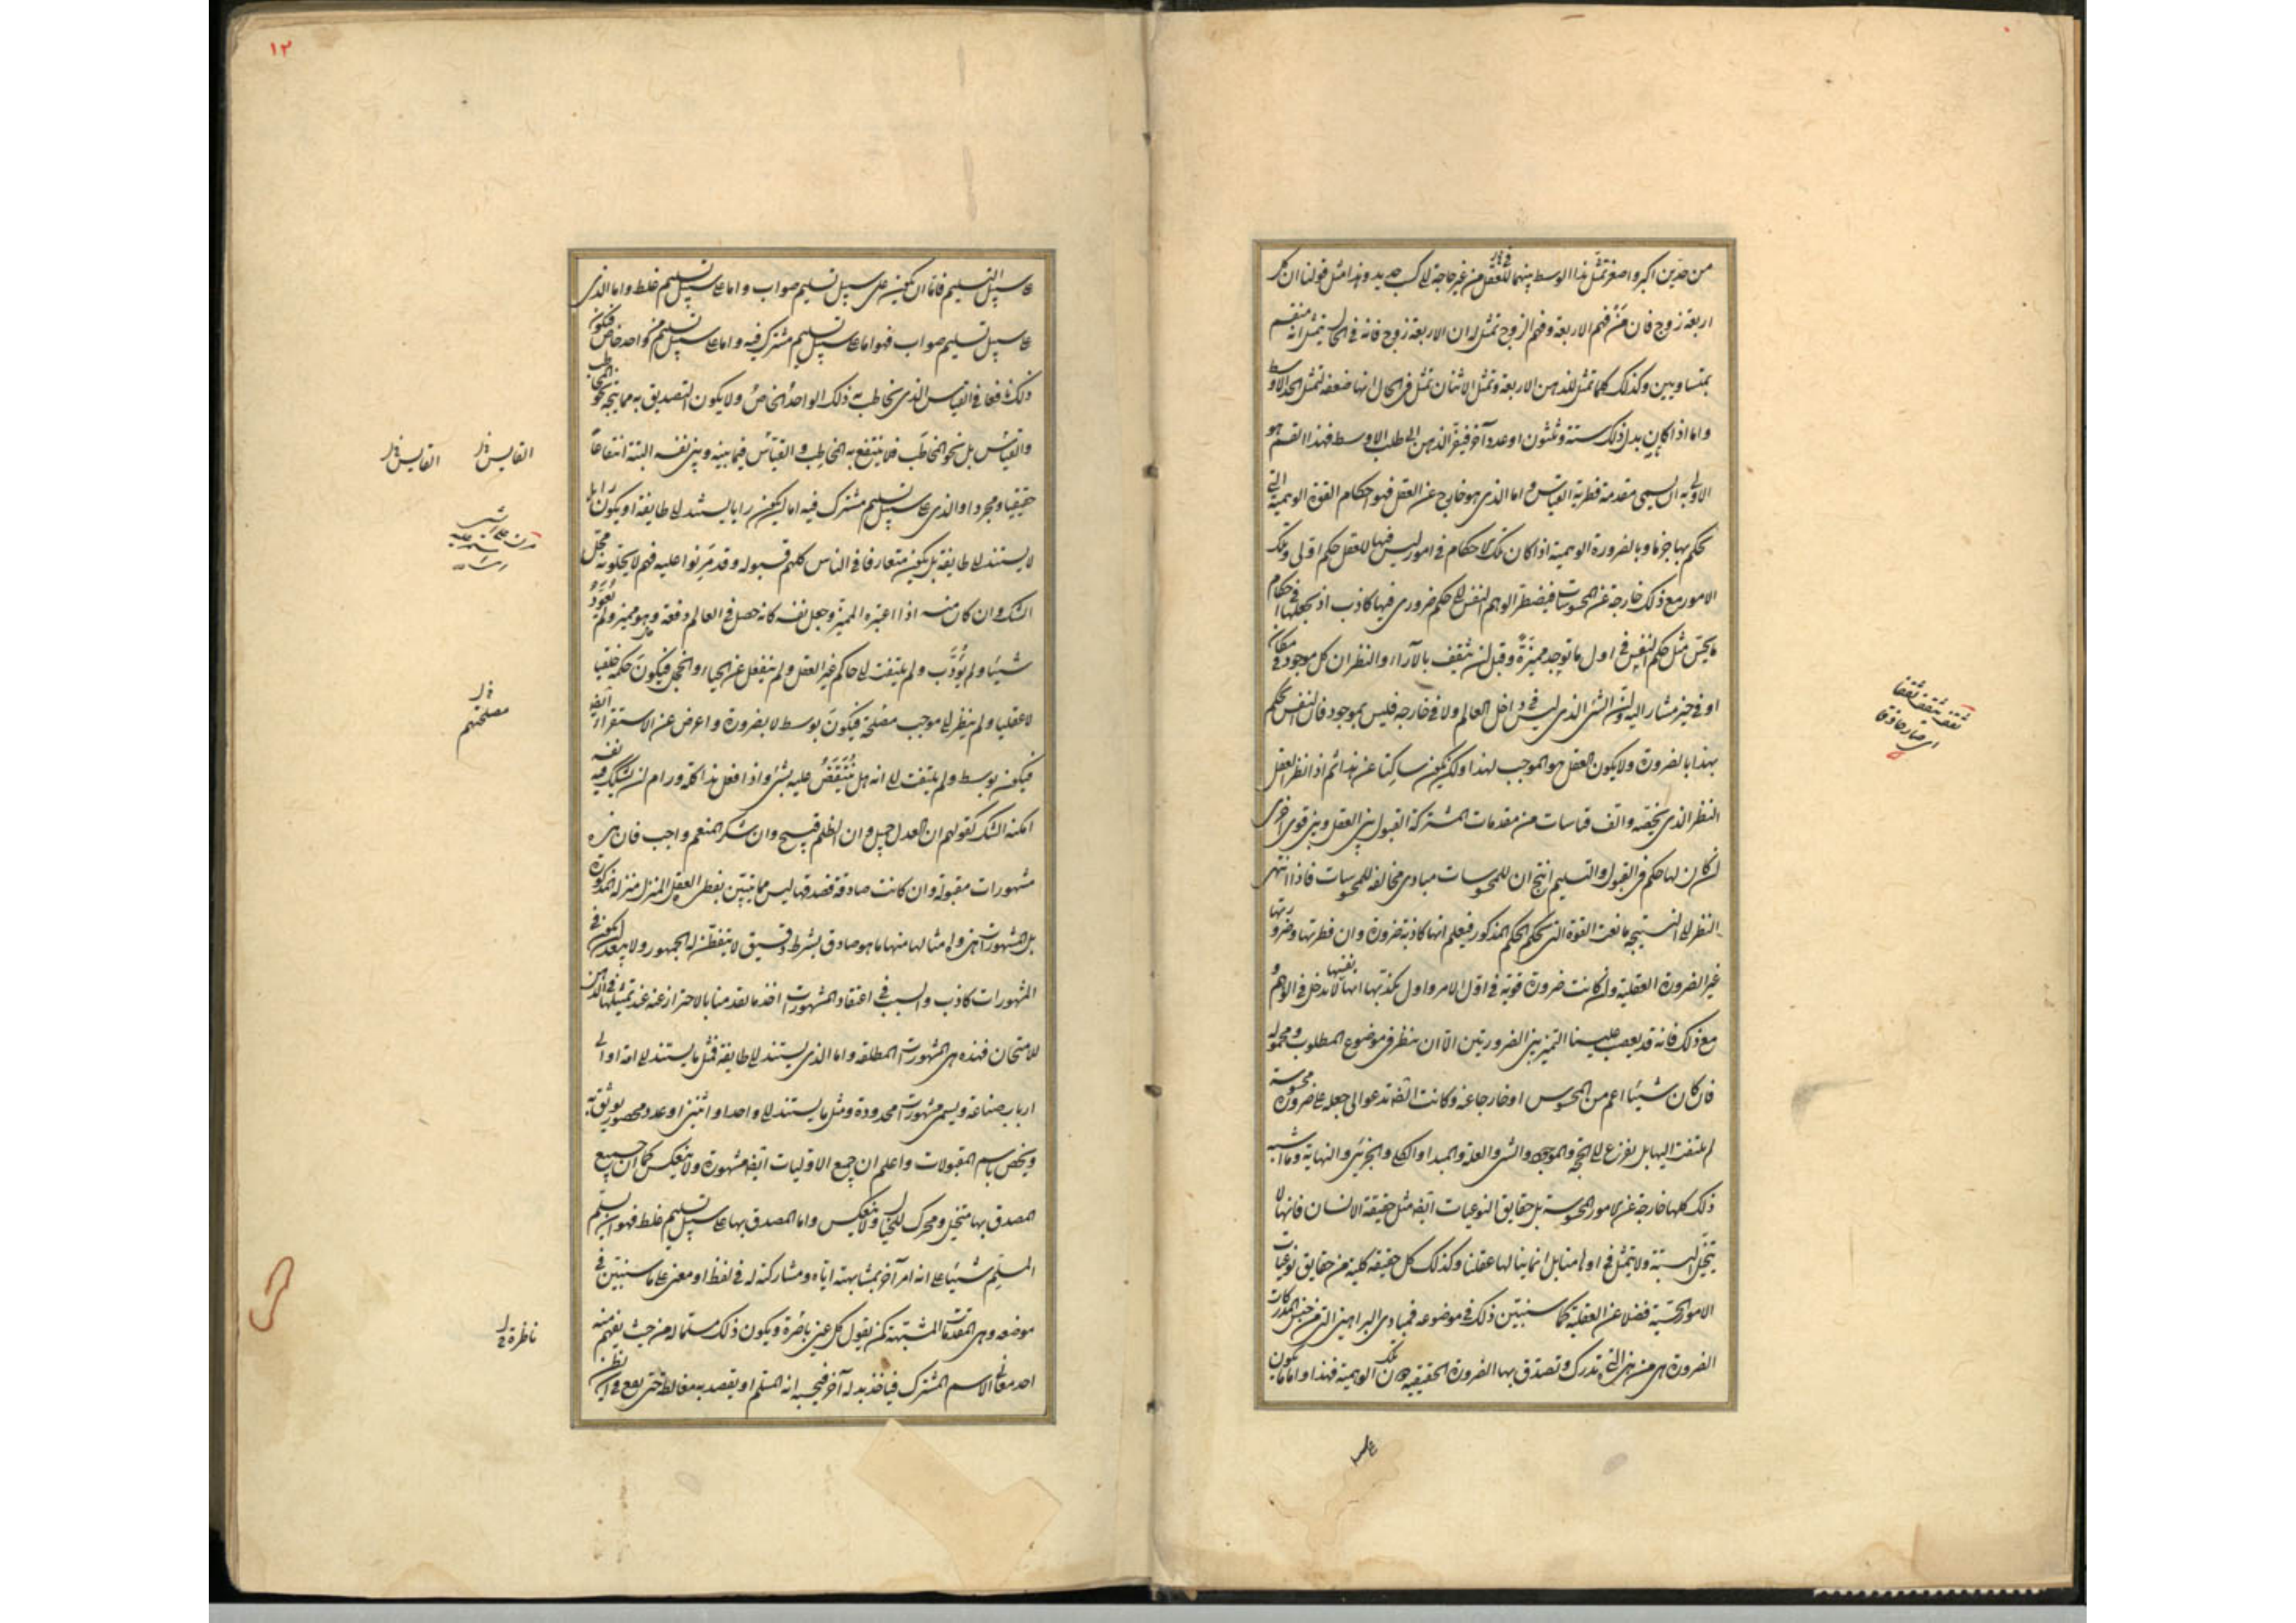 من حدين اكبر واصغر تمثل هذا الوسط بينهما للعقل من غير حاجة الى كسب جديد وهذا مثل قولنا ان كل
اربعة زوج فان من فهم الاربعة وفهم الزوج تمثل له ان الاربعة زوج فانه في الحال يتمثل انه منقسم
بمتساويين وكذلك كلما تمثل للذهن الاربعة وتمثل الاثنان تمثل في الحال انها ضعفه لتمثل الحد الاوسط
واما اذا كان بدل ذلك ستة وثلثون او عدد آخر فيفتقر الذهن الى طلب الاوسط فهذا القسم هو
الاولى به ان يسمى مقدمة فطرية القياس واما الذي هو خارج عن العقل فهو احكام القوة الوهمية التي
تحكم بها جزما وبالضرورة الوهمية اذا كان تلك الاحكام في امور ليس فيها للعقل حكم اولي وتلك
الامور مع ذلك خارجة عن المحسوسات فيضطر الوهم النفس الى حكم ضروري فيها كاذب اذ يجعلها في احكام
ما يحس مثل حكم النفس في اول ما توجد مميزة وقبل ان تثقف بالآراء والنظر ان كل موجود في مكان
او في حيز مشار اليه وان الشئ الذي ليس في داخل العالم ولا في خارجه فليس بموجود فان النفس تحكم
بهذا بالضرورة ولا يكون العقل هو الموجب لهذا ولكن يكون ساكتا عن هذا ثم اذا نظر العقل
النظر الذي يخصه والف قياسات من مقدمات المشتركة القبول بين العقل وبين قوى اخرى
ان كان لها حكم في القبول والتسليم انتج ان للمحسوسات مبادى مخالفة للمحسوسات فاذا انتهى
النظر الى النتيجة مانعت القوة التي تحكم الحكم المذكور فيعلم انها كاذبة ضرورة وان فطرتها وضرورتها
غير الضرورة العقلية وان كانت ضرورة قوية في اول الامر واول تكذيبها انها نفسها لا تدخل في الوهم و
مع ذلك فانه قد يصعب علينا التميز بين الضرورتين الا ان ينظر في موضوع المطلوب ومحموله
فان كان شيئا اعم من المحسوس او خارجا عنه وكانت الضرورة تدعو الى جعله على صورة محسوسة
لم يلتفت اليها بل نفزع الى الحجة والموجود والشئ والعلة والمبدا والكلي والجزئي والنهاية وما اشبه
ذلك كلها خارجة عن الامور المحسوسة بل حقايق النوعيات ايضا مثل حقيقة الانسان فانها لا
تتخيل البتة ولا يتمثل في اوهامنا بل انما ينالها عقلنا وكذلك كل حقيقة كلية من حقايق نوعيات
الامور الحسية فضلا عن العقلية كما سنبين ذلك في موضوعه فمبادى البراهين التي من جنس المدركات
الضرورة هي من بين التي تدرك وتصدق بها الضرورة الحقيقية دون تلك الوهمية فهذا واما ما يكون
على
ثقف يثقف ثقفا
اى صار حاذقا
١٢
على سبيل التسليم فاما ان يكون على سبيل تسليم صواب واما على سبيل تسليم غلط واما الذي
على سبيل تسليم صواب فهو اما على سبيل تسليم مشترك فيه واما على سبيل تسليم من واحد خاص فيكون
ذلك نافعا في القياس الذي يخاطب به ذلك الواحد الخاص ولا يكون التصديق به مما يتجه نحو المخاطب
والقياس بل نحو المخاطب فلا ينتفع به المخاطب والقياس فيما بينه وبين نفسه البتة انتفاعا
حقيقيا ومجردا والذي على سبيل تسليم مشترك فيه اما ان يكون رايا يستند الى طايفة او يكون رايا
لا يستند الى طايفة بل يكون متعارفا في الناس كلهم قبوله وقد مرنوا عليه فهم لا يحلونه محل
الشك وان كان منه اذا اعتبره المميز وجعل نفسه كانه حصل في العالم دفعة وهو مميز ولم يعود
شيئا ولم يؤدب ولم يلتفت الى حاكم غير العقل ولم ينفعل عن الحياء والخجل فيكون حكمه خلقيا
لا عقليا ولم ينظر الى موجب مصلحة فيكون بوسط لا بضرورة واعرض عن الاستقراء ايضا
فيكون بوسط ولم يلتفت الى انه هل ينتقض عليه بشئ واذا فعل هذا كله ورام ان يشكك فيه نفسه
امكنه الشك كقولهم ان العدل جميل وان الظلم قبيح وان شكر المنعم واجب فان هذه
مشهورات مقبولة وان كانت صادقة فصدقها ليس مما يتبين بفطرة العقل المنزل منزلة المذكورة
بل المشهورات هذه وامثالها منها ما هو صادق بشرط دقيق لا يتفطن له الجمهور ولا يبعد ان يكون في
المشهورات كاذب والسبب في اعتقاد المشهورات اخذ ما تقدمنا بالاحتراز عنه عند تمثيلها في الذهن
للامتحان فهذه هي المشهورات المطلقة واما الذي يستند الى طايفة فمثل ما يستند الى امة او الى
ارباب صناعة ويسمى مشهورات محدودة ومثل ما يستند الى واحد او اثنين او عدد محصور يوثق به
ويخص باسم المقبولات واعلم ان جميع الاوليات ايضا مشهورة ولا ينعكس كما ان جميع
المصدق بها متخيل ومحرك للخيال ولا ينعكس واما المصدق بها على سبيل تسليم غلط فهو ان يسلم
المسلم شيئا على انه امر آخر بمشابهته اياه ومشاركته له في لفظ او معنى على ما سنبين في
موضعه وهي المقدمات المشتبهة كمن يقول كل عين باصرة ويكون ذلك مسلما له من حيث يفهم منه
احد معاني الاسم المشترك فياخذ بدله آخر فيحسب انه المسلم او يقصد به مغالطة حتى يقع في ان يظن
القايس
القايس
مصلحتهم
ناظرة